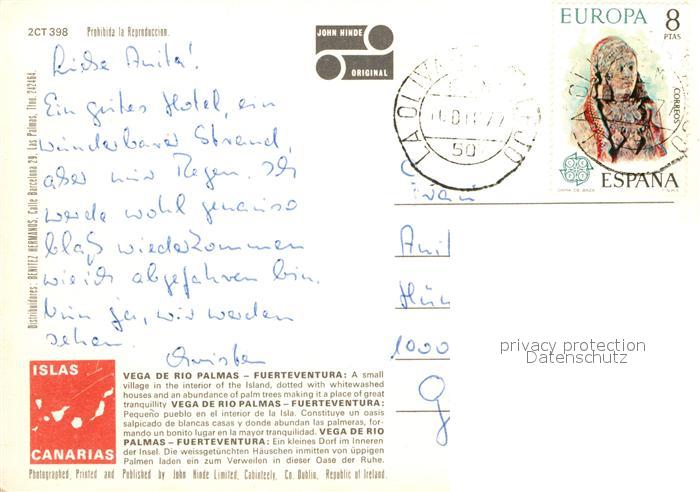 2CT 398 Prohibida la Reproduccion.
JOHN HINDE
ORIGINAL
EUROPA 8
PTAS
CORREOS
DAMA DE BAZA
ESPAÑA
LA OLIVA
50
Distribuidores: BENITEZ HERMANOS, Calle Barcelona 29, Las Palmas, Tfno. 242464.
Liebe Anita!
Ein gutes Hotel, ein
wunderbarer Strand,
aber nur Regen. Ich
werde wohl genauso
blaß wiederkommen
wie ich abgefahren bin.
Nun ja, wir werden
sehen.
Anit
Hün
1000
privacy protection
Datenschutz
ISLAS
CANARIAS
VEGA DE RIO PALMAS – FUERTEVENTURA: A small
village in the interior of the Island, dotted with whitewashed
houses and an abundance of palm trees making it a place of great
tranquillity VEGA DE RIO PALMAS – FUERTEVENTURA:
Pequeño pueblo en el interior de la Isla. Constituye un oasis
salpicado de blancas casas y donde abundan las palmeras, for-
mando un bonito lugar en la mayor tranquilidad. VEGA DE RIO
PALMAS – FUERTEVENTURA: Ein kleines Dorf im Inneren
der Insel. Die weissgetünchten Häuschen inmitten von üppigen
Palmen laden ein zum Verweilen in dieser Oase der Ruhe.
Photographed, Printed and Published by John Hinde Limited, Cabinteely, Co. Dublin, Republic of Ireland.